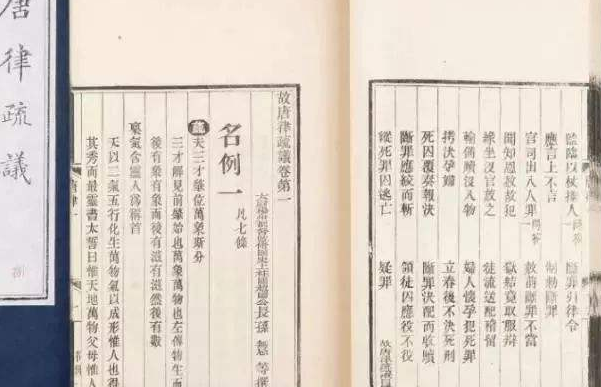 監臨以杖捶人 問答 斷罪引律令
應言上不言 制勑斷罪
官司出入人罪 問答 赦前斷罪不當
聞知恩赦故犯 獄結竟取服辯
緣坐沒官放之 徒流送配稽留
輸備贖沒入物 婦人懷孕犯死罪
拷決孕婦 立春後不決死刑
死囚覆奏報決 斷罪決配而收贖
斷罪應絞而斬 領徒囚應役不役
縱死罪囚逃亡 疑罪
故唐律疏議卷第一
公長孫無忌等撰
名例一 凡七條
疏 夫三才肇位萬象斯分
三才解見前肇始也萬象萬物也左傳物生而
後有象有象而後有滋滋然後有數
稟氣含靈人爲稱首
天以二氣五行化生萬物氣以成形惟人也得
其秀而最靈書太誓曰惟天地萬物父母惟人
唐律疏議